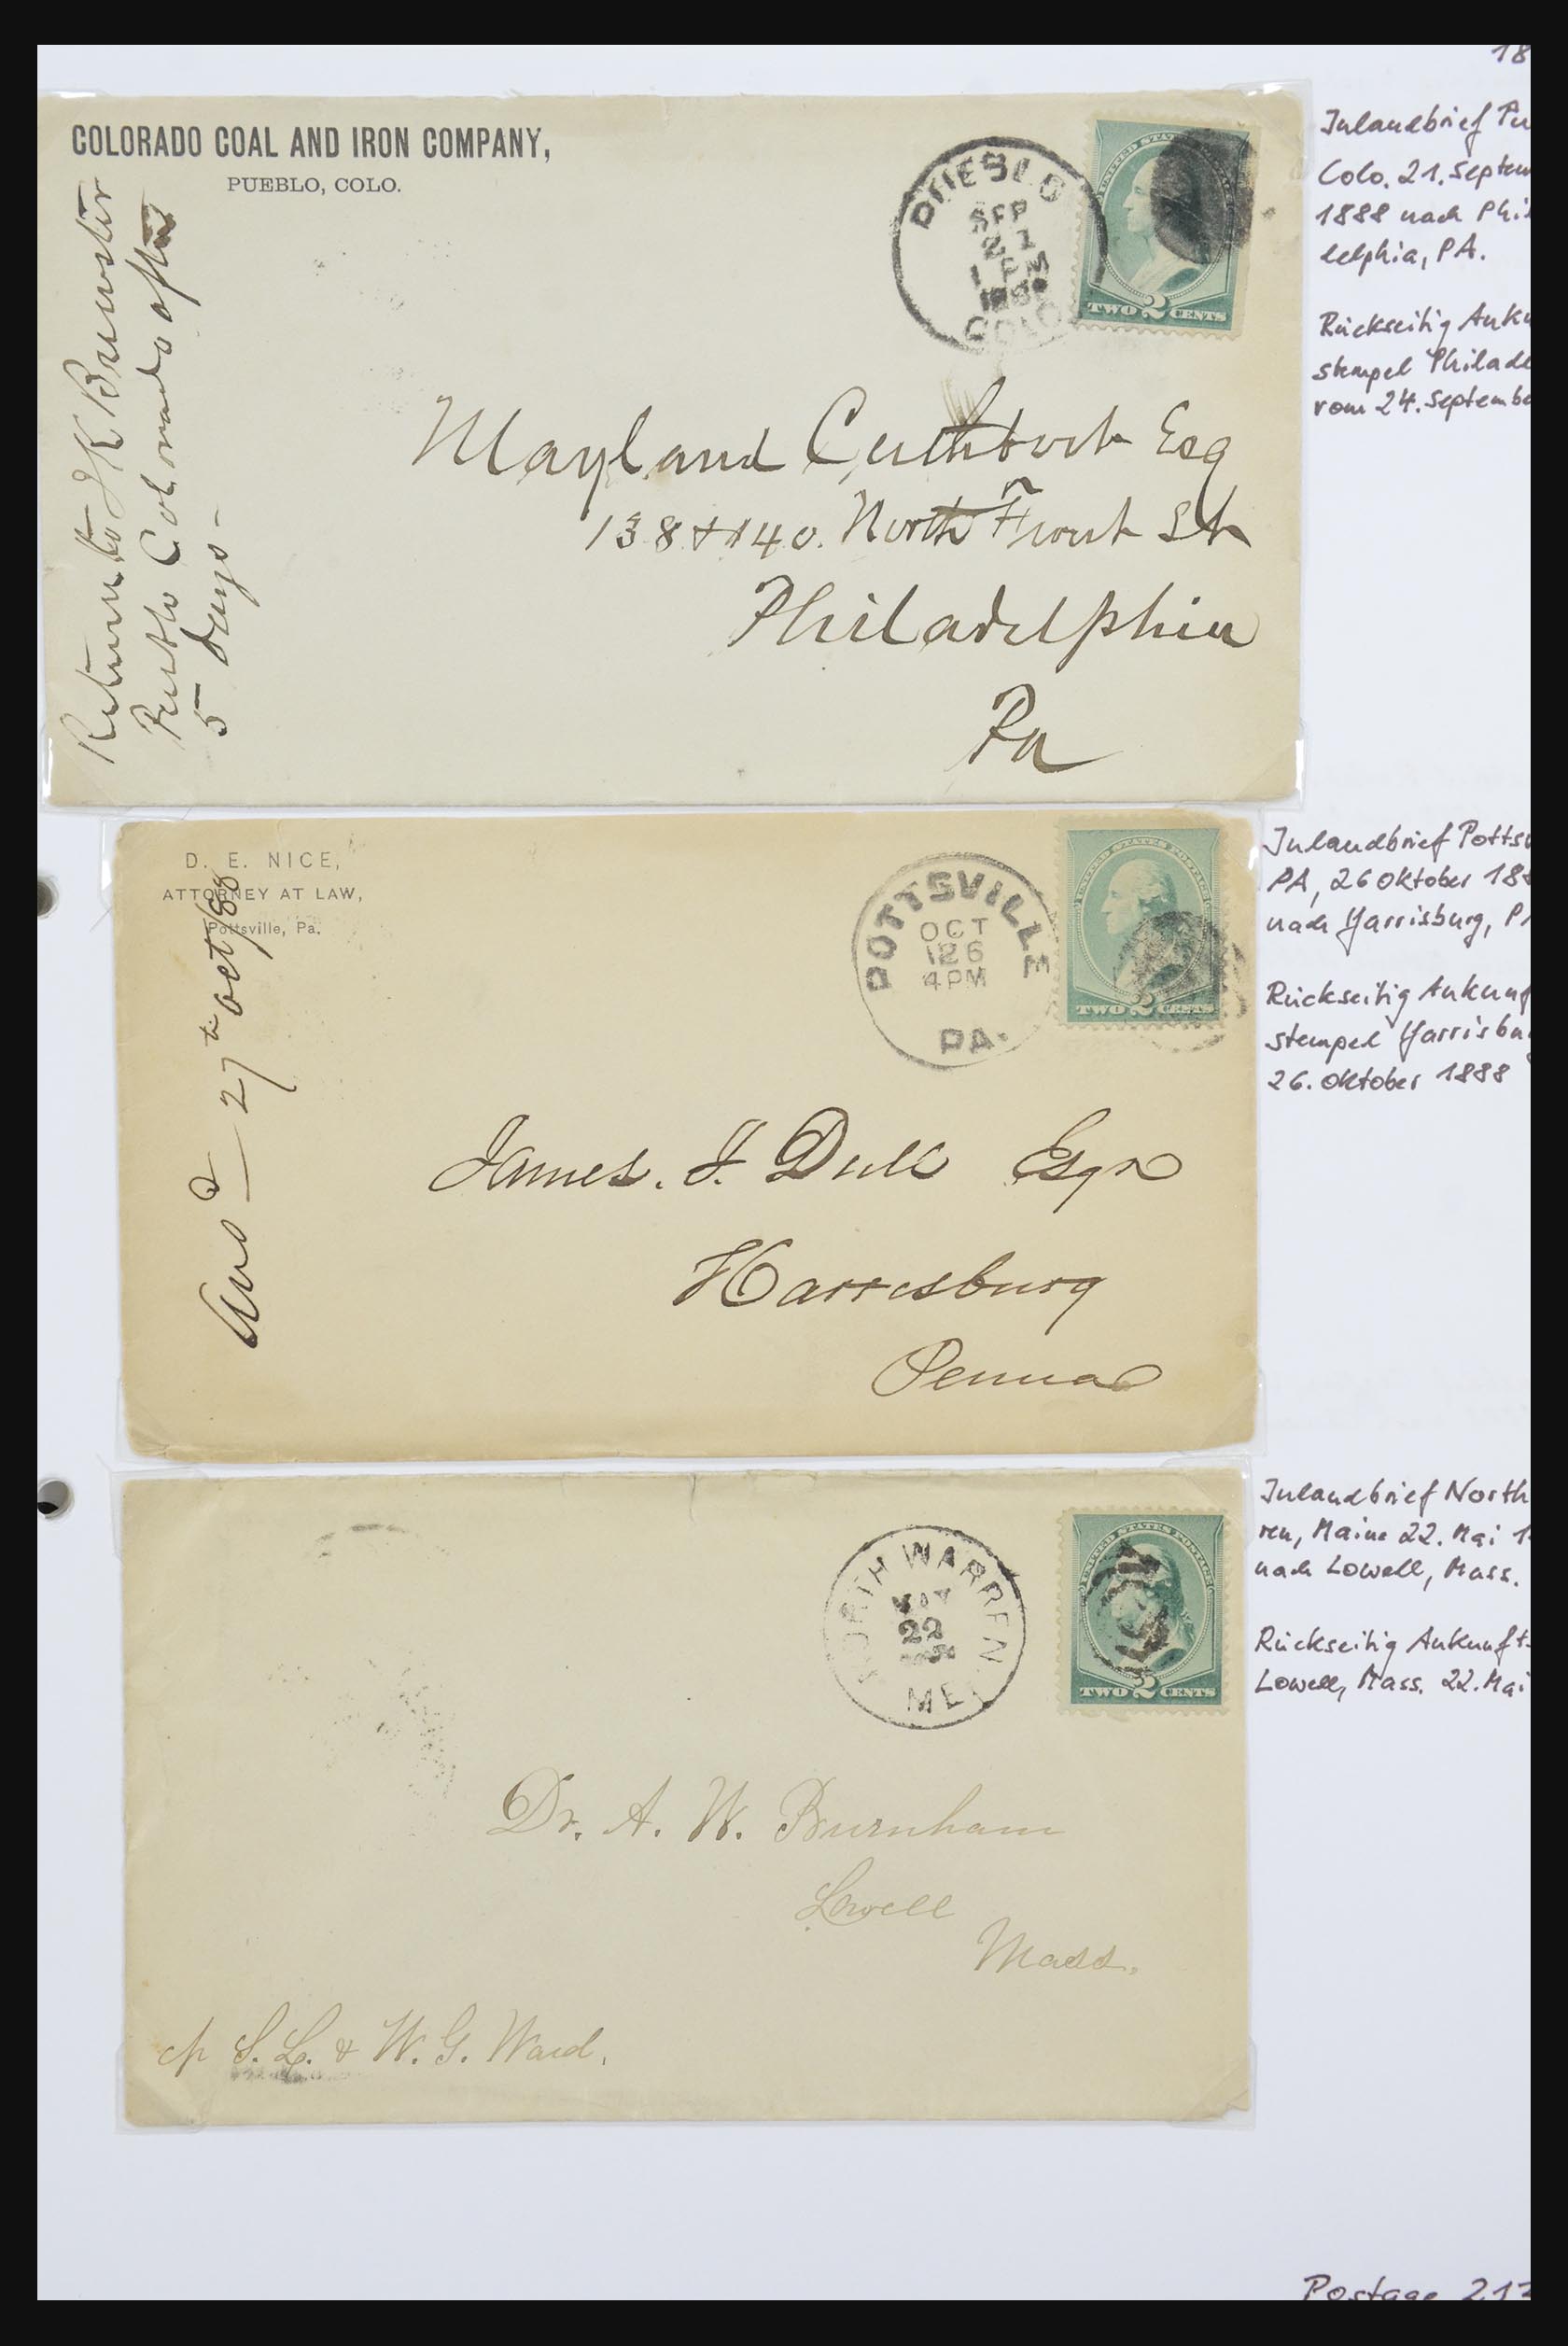 18
COLORADO COAL AND IRON COMPANY,
PUEBLO, COLO.
Return to J K Brewster
Pueblo Colorado after
5 days
PUEBLO
SEP
21
1 PM
1888
COLO
UNITED STATES
TWO 2 CENTS
Mayland Cuthbert Esq
138 & 140. North Front St
Philadelphia
Pa
Inlandbrief Pu
Colo. 21. Septem
1888 nach Phi
delphia, PA.
Rückseitig Anku
stempel Philade
vom 24. Septembe
D. E. NICE,
ATTORNEY AT LAW,
Pottsville, Pa.
Ansd 27th Oct/88
POTTSVILLE
OCT
26
4 PM
PA.
UNITED STATES POSTAGE
TWO 2 CENTS
James. I. Dull Esqr
Harrisburg
Penna
Inlandbrief Potts
PA, 26 Oktober 188
nach Harrisburg, P
Rückseitig Ankunf
stempel Harrisbu
26. Oktober 1888
NORTH WARREN
MAY
22
ME.
UNITED STATES POSTAGE
TWO 2 CENTS
Dr. A. W. Burnham
Lowell
Mass.
c/o S. L. & W. G. Ward.
Inlandbrief North
ren, Maine 22. Mai 1
nach Lowell, Mass.
Rückseitig Ankunft
Lowell, Mass. 22. Mai
Postage 213